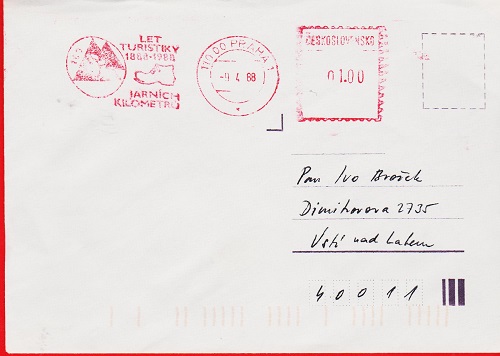 KČT
100 LET
TURISTIKY
1888-1988
100
JARNÍCH
KILOMETRŮ
110 00 PRAHA 1
-9. 4. 88
ČESKOSLOVENSKO
01.00
Pan Ivo Brožek
Dimitrovova 2735
Ústí nad Labem
400 11